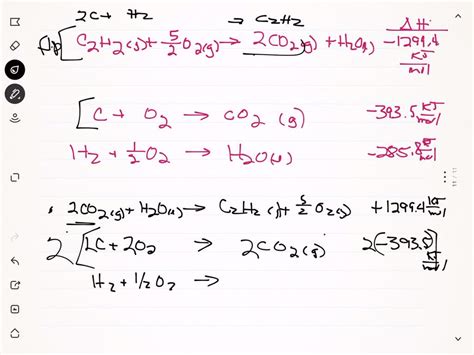 2C + H2 → C2H2
ΔH
flip [ C2H2(g) + 5/2 O2(g) → 2CO2(g) + H2O(l) -1299.4 KJ/mol
[ C + O2 → CO2 (g) -393.5 KJ/mol
H2 + 1/2 O2 → H2O(l) -285.8 KJ/mol
2CO2(g) + H2O(l) → C2H2(g) + 5/2 O2(g) +1299.4 KJ/mol
2 [ 2C + 2O2 → 2CO2(g) 2(-393.5) KJ/mol
H2 + 1/2 O2 →